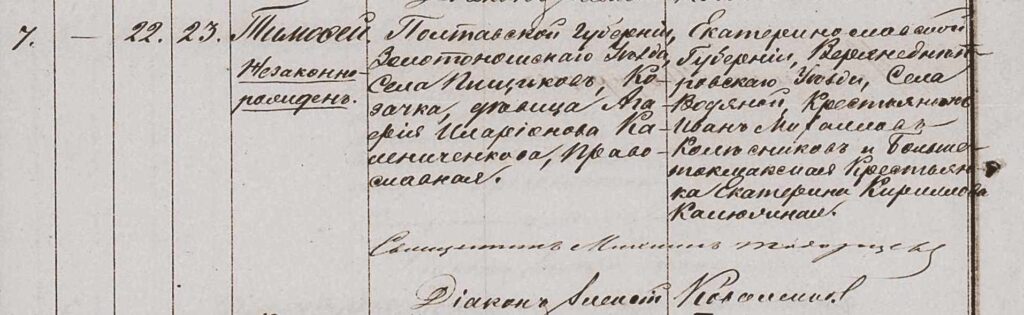 7. — 22. 23.
Тимофей
Незаконно-
рожденъ.
Полтавской Губерніи,
Золотоношскаго Уѣзда,
Села Пищиковъ, Ко-
зачка, дѣвица Ага-
фія Иларіонова Ка-
лениченкова, Право-
славная.
Екатеринославской
Губерніи, Верхнеднѣп-
ровскаго Уѣзда, Села
Водяной, Крестьянинъ
Иванъ Михаиловъ
Колѣсниковъ и Больше-
токмакская Крестьян-
ка Екатерина Кириллова
Калюжная.
Священникъ
Діаконъ